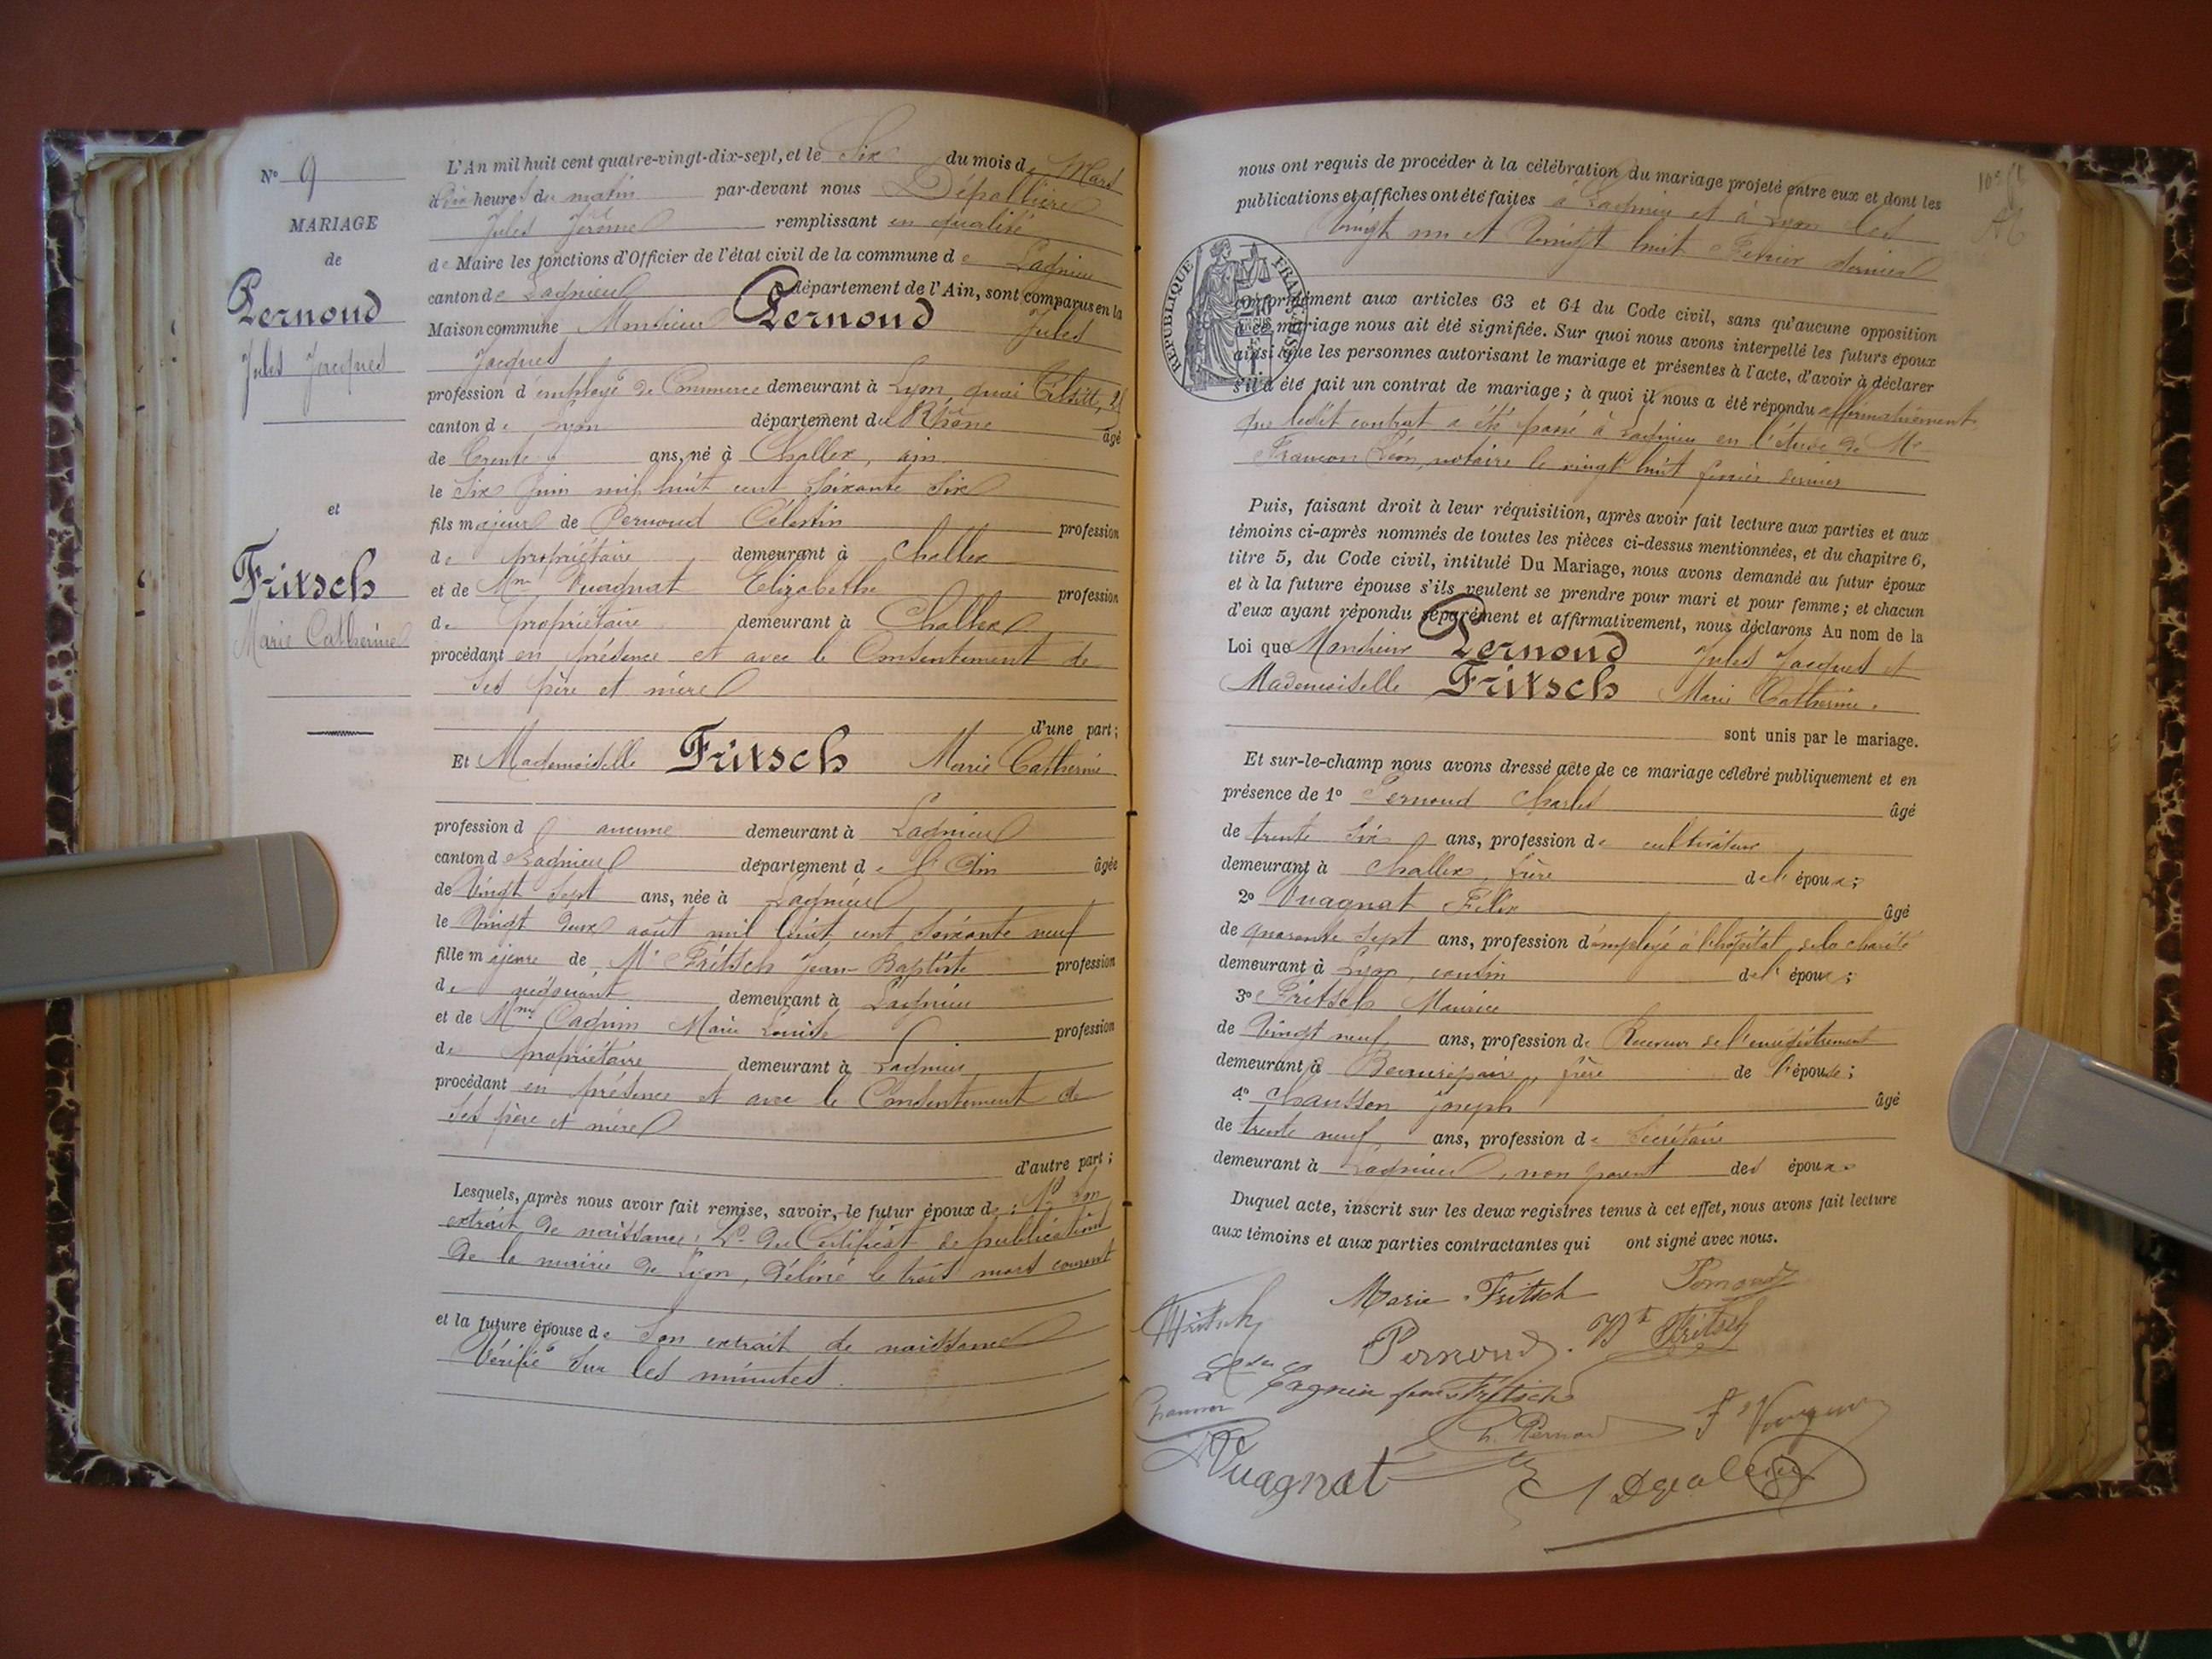 N° 9
MARIAGE
de
Pernoud
Jules Jacques
et
Fritsch
Marie Catherine
L'An mil huit cent quatre-vingt-dix-sept, et le Six du mois de Mars
à dix heures du matin par-devant nous Dépollière
Jules Jérôme remplissant en qualité
de Maire les fonctions d'Officier de l'état civil de la commune de Lagnieu
canton de Lagnieu département de l'Ain, sont comparus en la
Maison commune Monsieur Pernoud Jules
Jacques
profession d'employé de Commerce demeurant à Lyon, quai Tilsitt,
canton de Lyon département du Rhône âgé
de trente ans, né à Challex, ain
le Six Juin mil huit cent soixante six
fils majeur de Pernoud Célestin profession
de propriétaire demeurant à Challex
et de Mme Vuagnat Elizabeth profession
de propriétaire demeurant à Challex
procédant en présence et avec le Consentement de
ses père et mère
d'une part;
Et Mademoiselle Fritsch Marie Catherine
profession d aucune demeurant à Lagnieu
canton de Lagnieu département de l'Ain âgée
de Vingt Sept ans, née à Lagnieu
le Vingt deux août mil huit cent soixante neuf
fille majeure de Mr Fritsch Jean-Baptiste profession
de négociant demeurant à Lagnieu
et de Mme Cagnin Marie Louise profession
de propriétaire demeurant à Lagnieu
procédant en présence et avec le Consentement de
ses père et mère
d'autre part;
Lesquels, après nous avoir fait remise, savoir, le futur époux de: 1° Son
extrait de naissance; 2° du Certificat de publications
de la mairie de Lyon, délivré le trois mars courant
et la future épouse de Son extrait de naissance
Vérifié sur les minutes.
nous ont requis de procéder à la célébration du mariage projeté entre eux et dont les
publications et affiches ont été faites à Lagnieu et à Lyon les
Vingt un et Vingt huit Février dernier
REPUBLIQUE FRANÇAISE
conformément aux articles 63 et 64 du Code civil, sans qu'aucune opposition
à ce mariage nous ait été signifiée. Sur quoi nous avons interpellé les futurs époux
ainsi que les personnes autorisant le mariage et présentes à l'acte, d'avoir à déclarer
s'il a été fait un contrat de mariage; à quoi il nous a été répondu affirmativement
que ledit contrat a été passé à Lagnieu en l'étude de Me
Françon Léon, notaire le vingt huit février dernier
Puis, faisant droit à leur réquisition, après avoir fait lecture aux parties et aux
témoins ci-après nommés de toutes les pièces ci-dessus mentionnées, et du chapitre 6,
titre 5, du Code civil, intitulé Du Mariage, nous avons demandé au futur époux
et à la future épouse s'ils veulent se prendre pour mari et pour femme; et chacun
d'eux ayant répondu séparément et affirmativement, nous déclarons Au nom de la
Loi que Monsieur Pernoud Jules Jacques et
Mademoiselle Fritsch Marie Catherine.
sont unis par le mariage.
Et sur-le-champ nous avons dressé acte de ce mariage célébré publiquement et en
présence de 1° Pernoud Charles âgé
de trente six ans, profession de cultivateur
demeurant à Challex, frère de l'époux;
2° Vuagnat Félix âgé
de quarante Sept ans, profession d'employé à l'hôpital de la charité
demeurant à Lyon, cousin de l'époux;
3° Fritsch Maurice
de Vingt neuf ans, profession de Receveur de l'enregistrement
demeurant à Beaurepaire, frère de l'épouse;
4° Chausson Joseph âgé
de trente neuf ans, profession de Secrétaire
demeurant à Lagnieu, non parent des époux
Duquel acte, inscrit sur les deux registres tenus à cet effet, nous avons fait lecture
aux témoins et aux parties contractantes qui ont signé avec nous.
Marie Fritsch Pernoud
Fritsch Pernoud. Fritsch
Cagnin femme Fritsch
Chausson Pernoud
Vuagnat